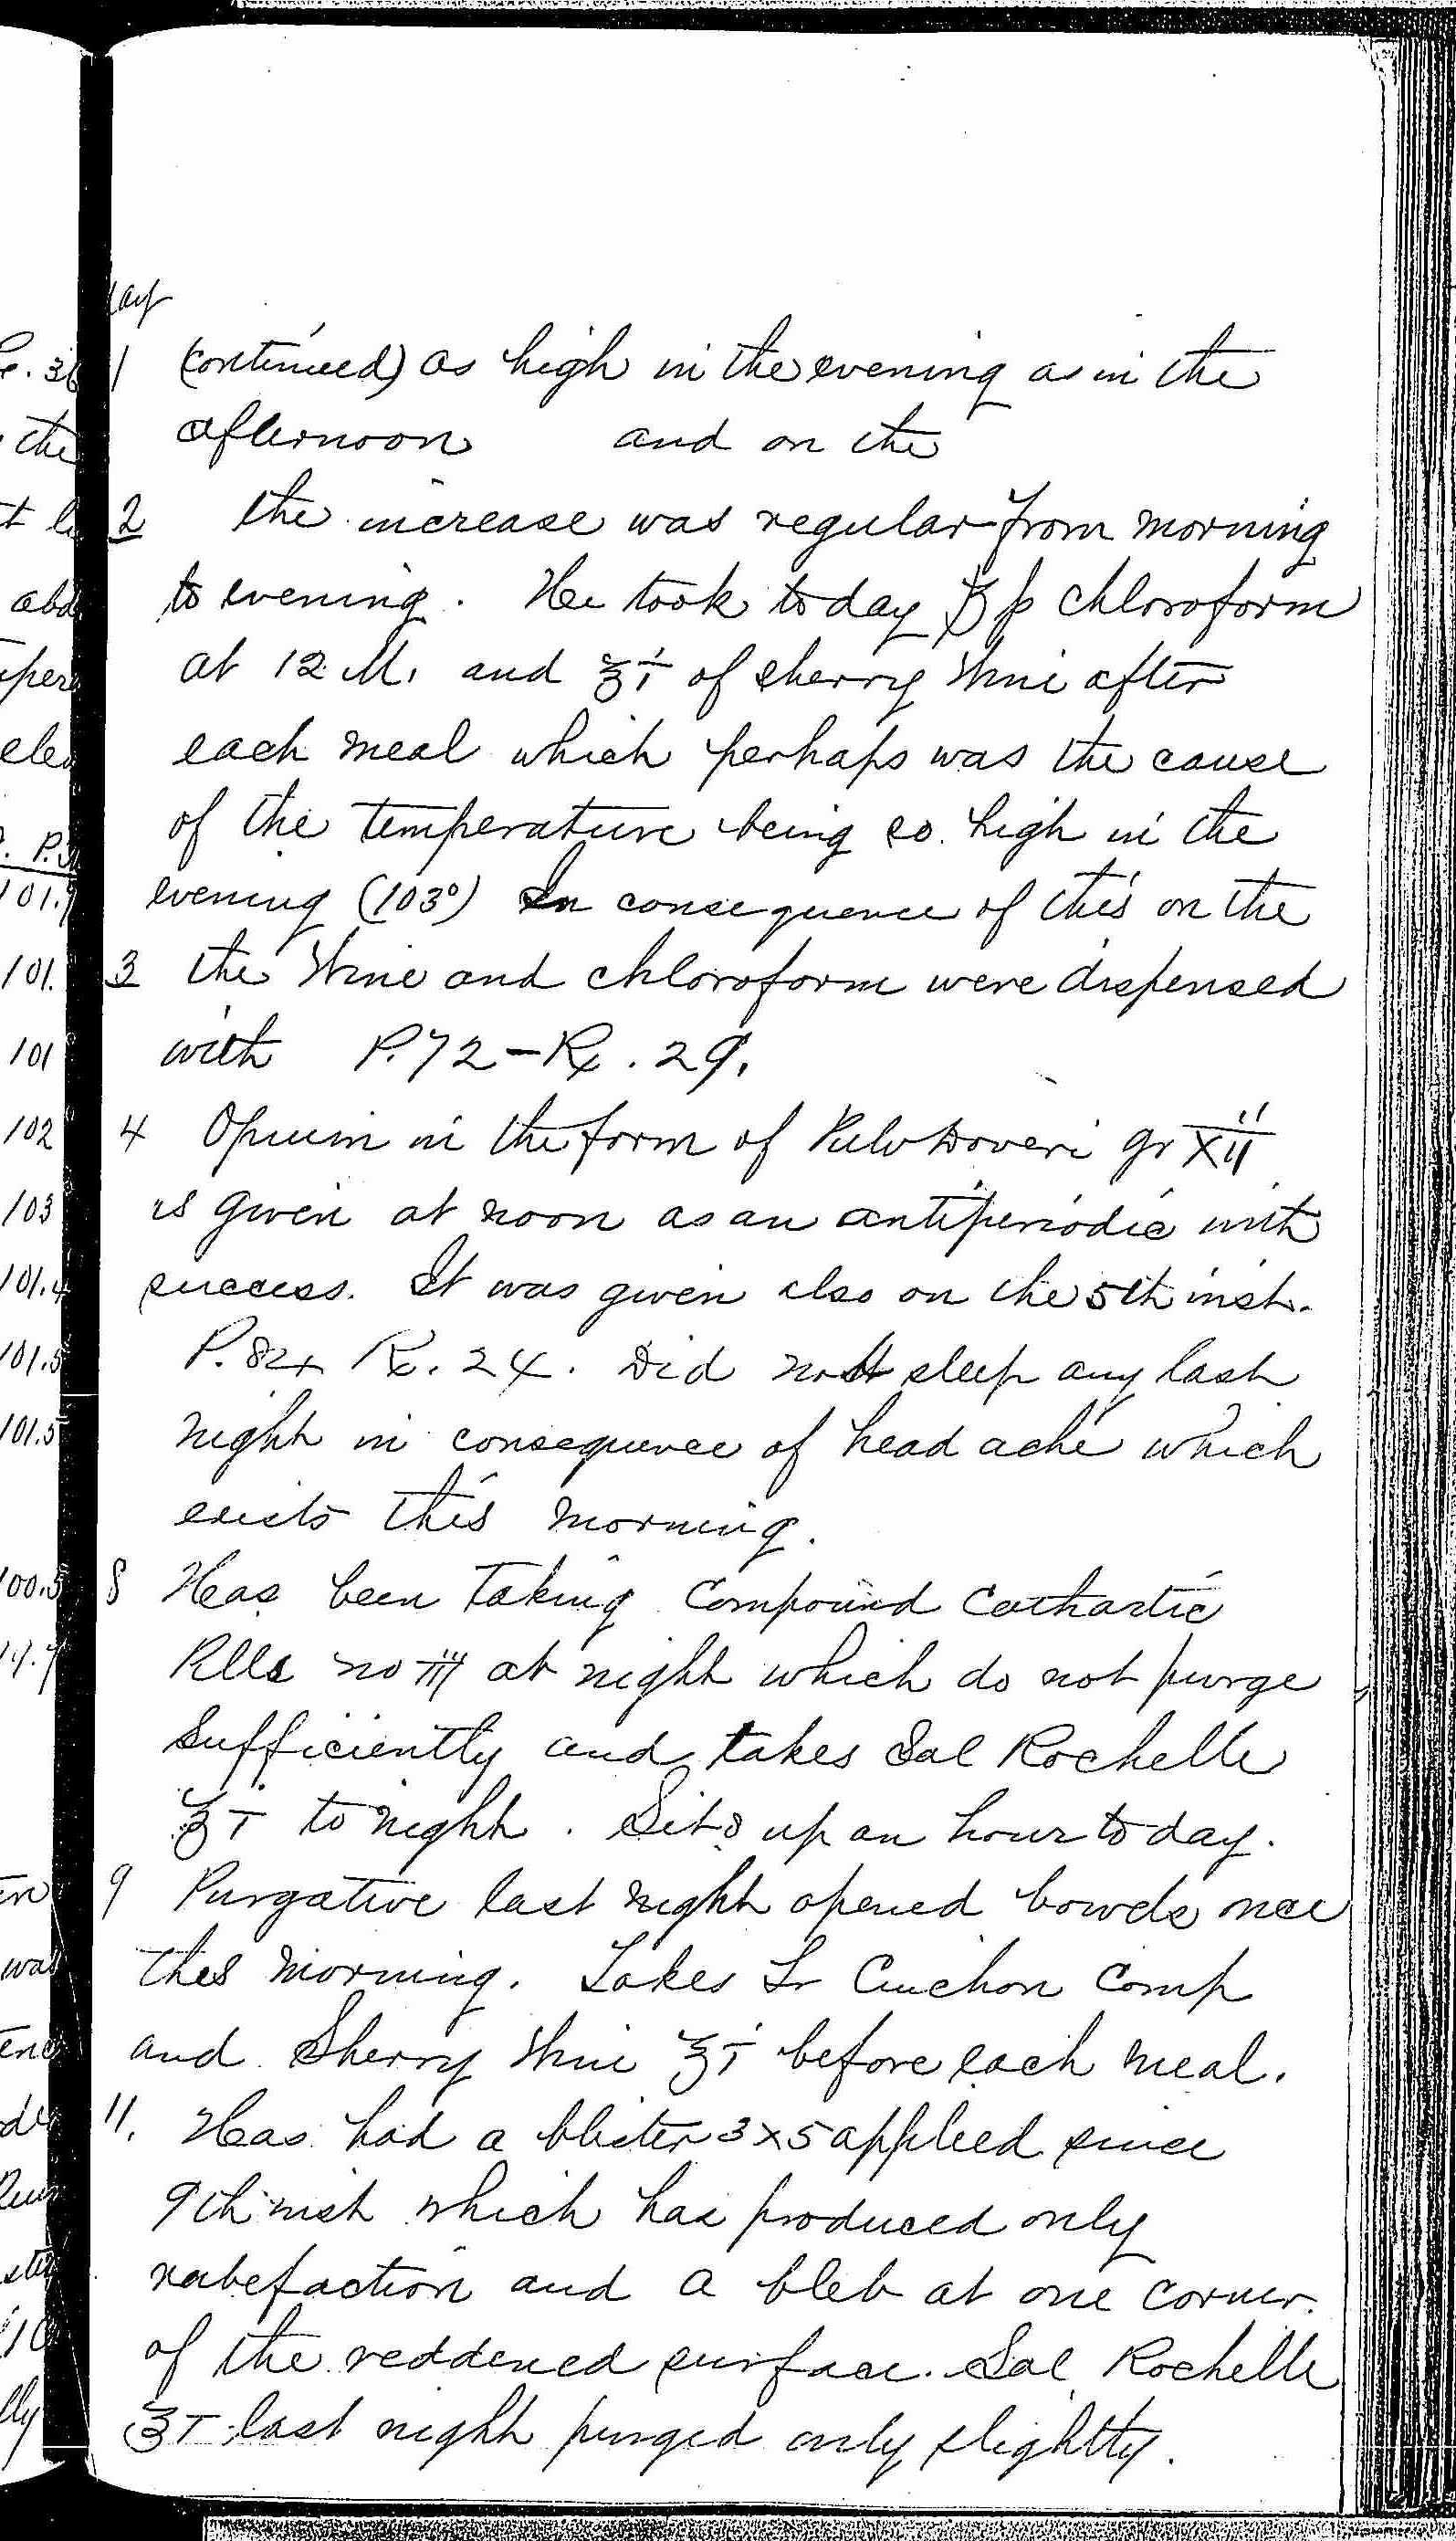 1 (continued) as high in the evening as in the
afternoon and on the
2 the increase was regular from morning
to evening. He took to day ʒ chloroform
at 12 M. and ℥i of sherry Wine after
each meal which perhaps was the cause
of the temperature being so high in the
evening (103°) In consequence of this on the
3 the Wine and chloroform were dispensed
with P. 72 — R. 29.
4 Opium in the form of Pulv Doveri gr XII
is given at noon as an antiperiodic with
success. It was given also on the 5th inst.
P. 84 R. 24. Did not sleep any last
night in consequence of head ache which
exists this morning.
8 Has been taking Compound Cathartic
Pills no iii at night which do not purge
sufficiently and takes Sal Rochelle
℥i to night. Sits up an hour to day.
9 Purgative last night opened bowels once
this morning. Takes Tr Cinchon Comp
and Sherry Wine ℥i before each meal.
11. Has had a blister 3x5 applied since
9th inst which has produced only
rubefaction and a bleb at one corner
of the reddened surface. Sal Rochelle
℥i last night purged only slightly.